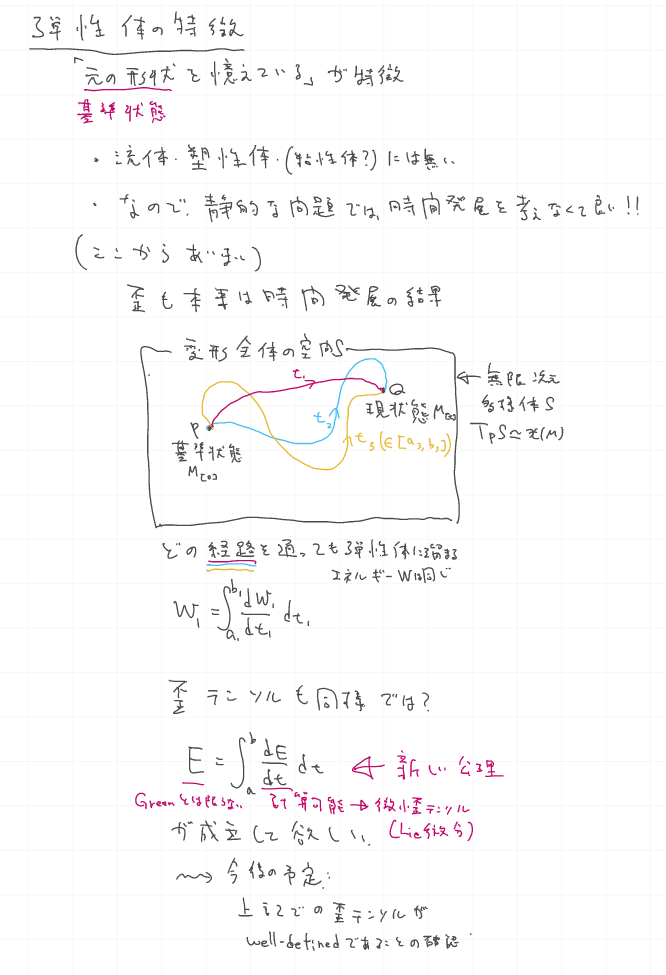 弾性体の特徴
「元の形状を憶えている」が特徴
基準状態
・流体・塑性体・(粘性体?)には無い
・なので、静的な問題では、時間発展を考えなくて良い!!
(ここからあいまい)
歪も本来は時間発展の結果
変形全体の空間S
t₁
Q
現状態 M[t]
t₂
P
基準状態
M[0]
t₃(∈[a₃,b₃])
← 無限次元
多様体S
TpS≃𝔛(M)
どの経路を通っても弾性体に溜まる
エネルギーWは同じ
W₁ = ∫_{a₁}^{b₁} dW₁/dt₁ dt₁
歪テンソルも同様では?
E = ∫_a^b dE/dt dt ← 新しい公理
Greenとは限らない 計算可能→微小歪テンソル
(Lie微分)
が成立して欲しい.
〜〜> 今後の予定:
上記での歪テンソルが
well-definedであることの確認.